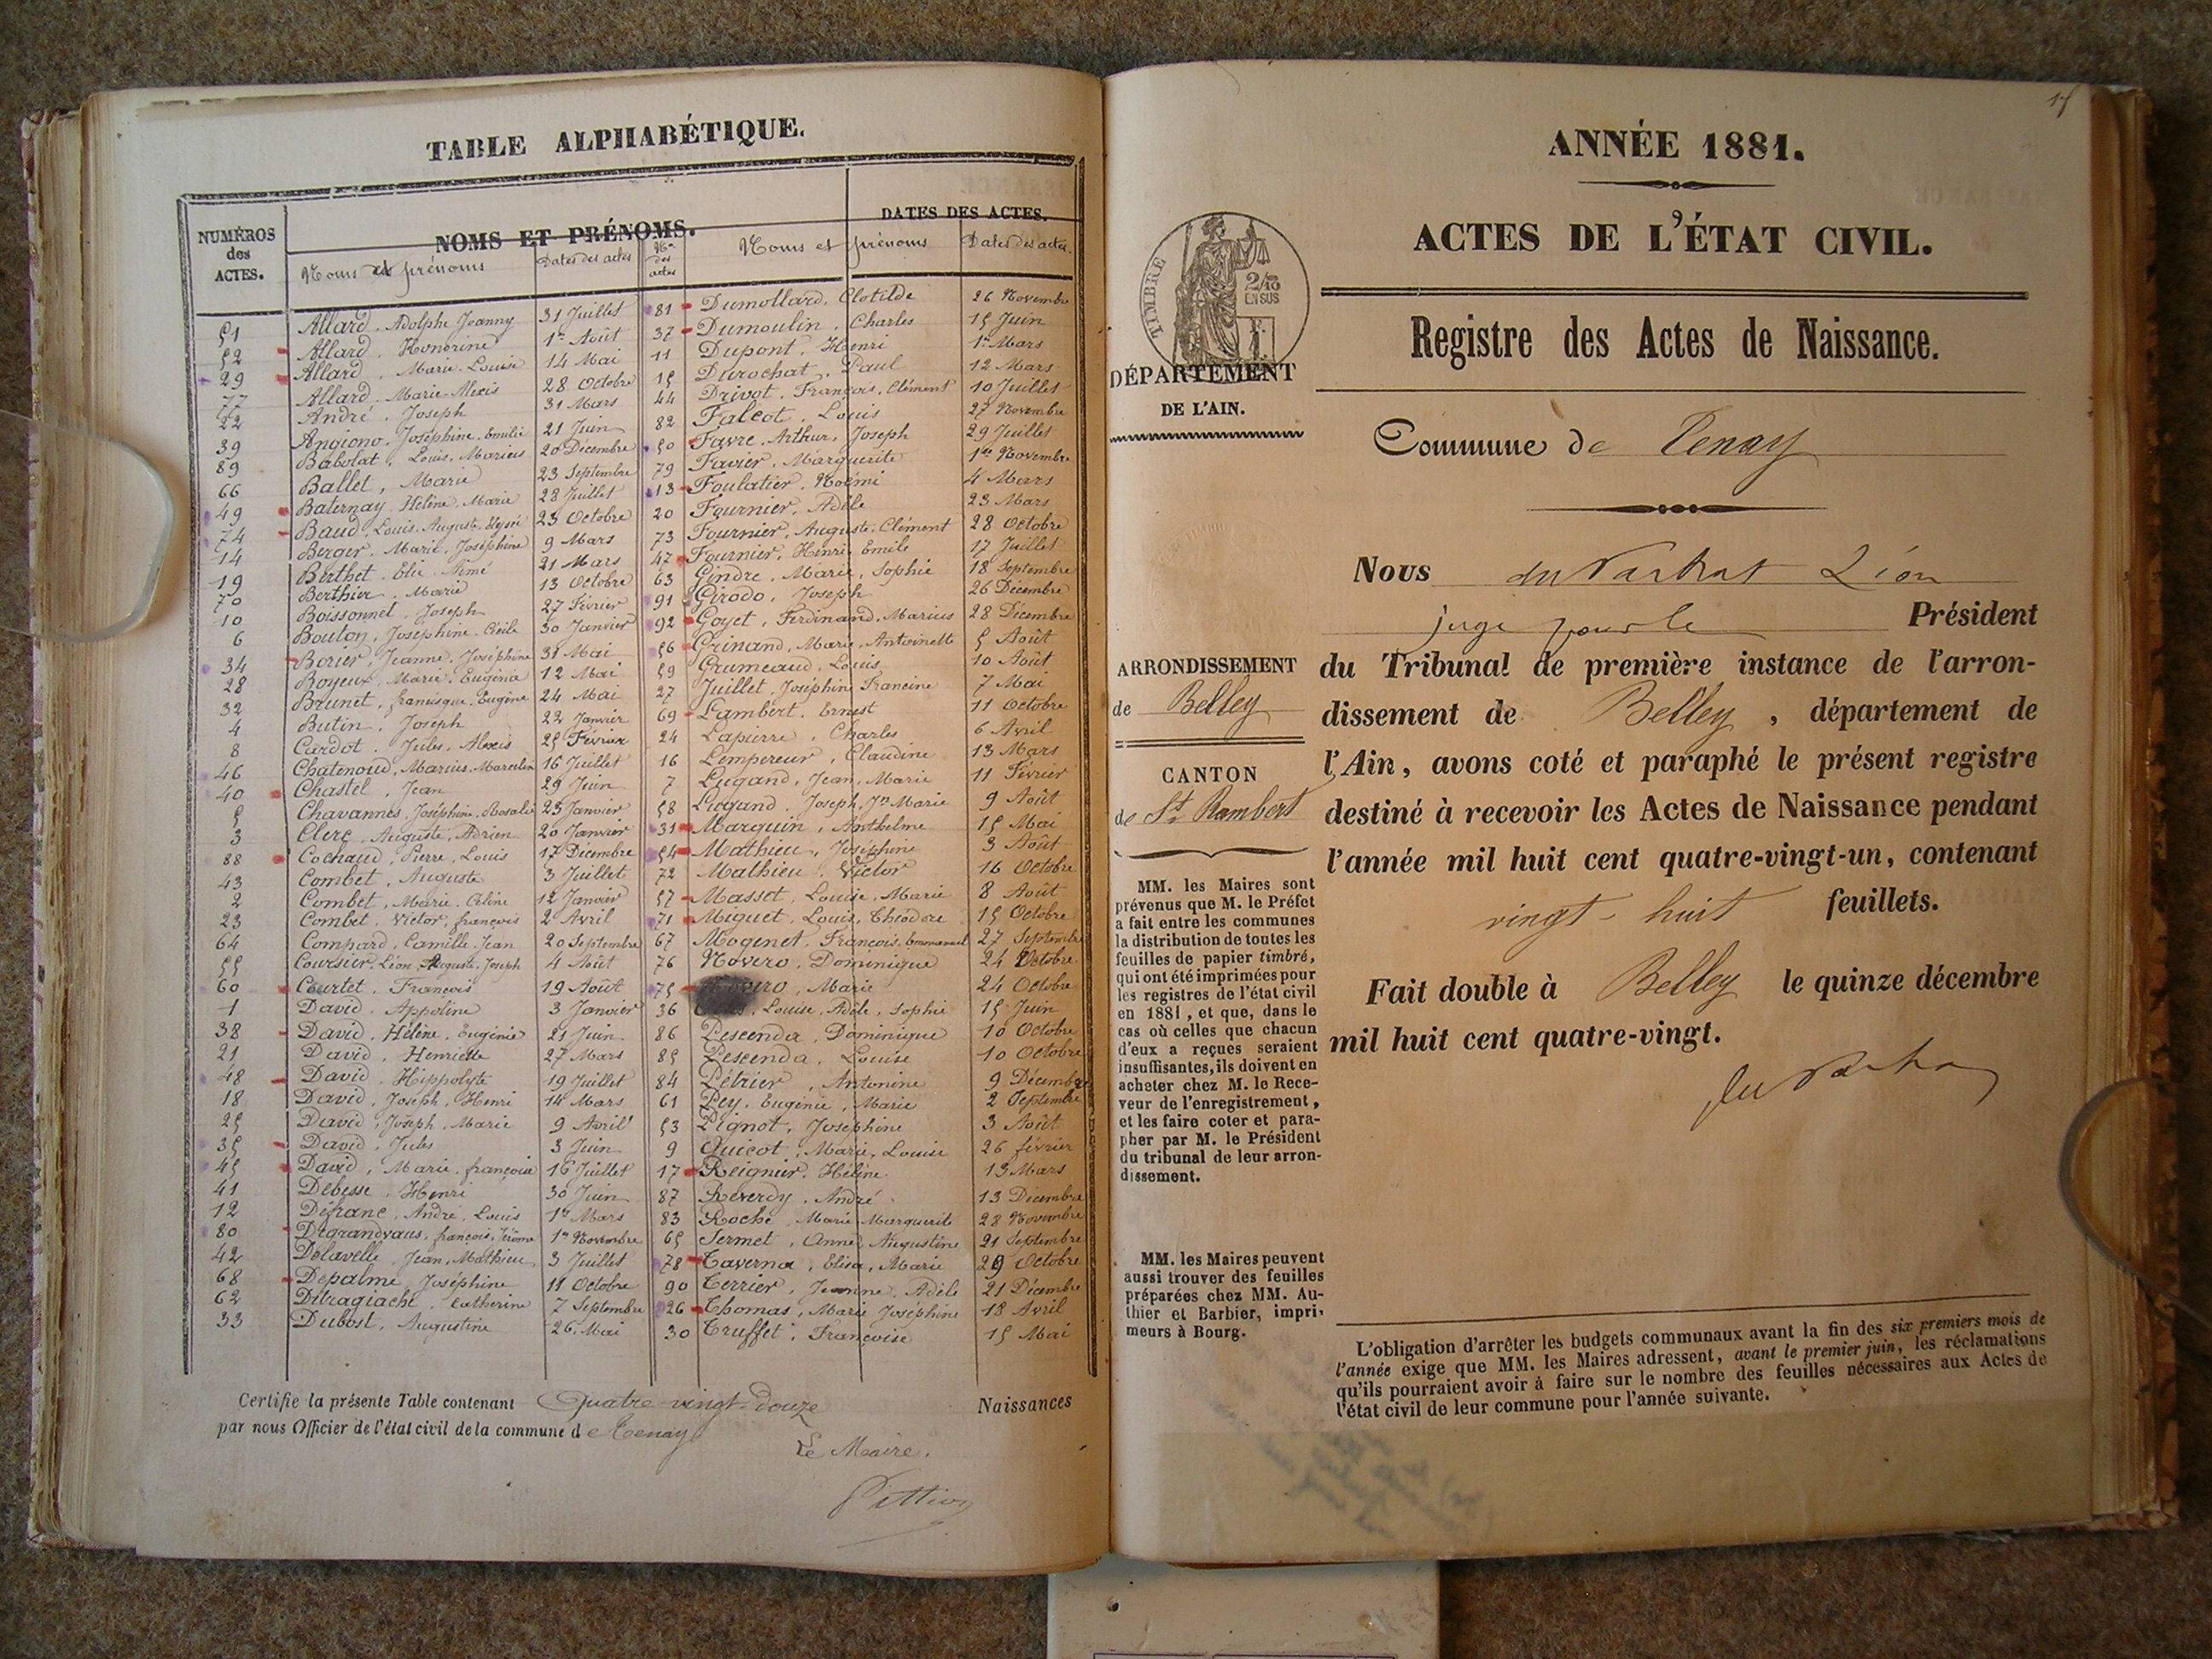 TABLE ALPHABÉTIQUE.
NUMÉROS des ACTES.
NOMS ET PRÉNOMS.
DATES DES ACTES.
Noms et prénoms
Dates des actes
Nos des actes
Noms et prénoms
Dates des actes
51 Allard, Adolphe Jeanny 31 Juillet
52 Allard, Honorine 1er Août
29 Allard, Marie Louise 14 Mai
77 Allard, Marie Alexis 28 Octobre
22 André, Joseph 31 Mars
39 Angiono, Joséphine, Emilie 21 Juin
89 Babolat, Louis, Marius 20 Décembre
66 Ballet, Marie 23 Septembre
49 Baternay, Hélène, Marie 28 Juillet
74 Baud, Louis, Auguste, 23 Octobre
14 Berger, Marie, Joséphine 9 Mars
19 Berthet, Elie, Aimé 21 Mars
70 Berthier, Marie 13 Octobre
10 Boissonnet, Joseph 27 Février
6 Bouton, Joséphine, Cécile 30 Janvier
34 Borier, Jeanne, Joséphine 31 Mai
28 Boyeux, Marie, Eugénie 12 Mai
32 Brunet, françisque, Eugène 24 Mai
4 Butin, Joseph 22 Janvier
8 Cardot, Jules, Alexis 25 Février
46 Chatenoud, Marius, Marcelin 16 Juillet
40 Chastel, Jean 29 Juin
5 Chavannes, Joséphine, Rosalie 25 Janvier
3 Clerc, Auguste, Adrien 20 Janvier
88 Cochaud, Pierre, Louis 17 Décembre
43 Combet, Auguste 3 Juillet
2 Combet, Marie, Céline 12 Janvier
23 Combet, Victor, françois 2 Avril
64 Compard, Camille, Jean 20 Septembre
55 Coursier, Léon, Auguste, Joseph 4 Août
60 Courtet, François 19 Août
1 David, Appoline 3 Janvier
38 David, Hélène, Eugénie 21 Juin
21 David, Henriette 27 Mars
48 David, Hippolyte 19 Juillet
18 David, Joseph, Henri 14 Mars
25 David, Joseph, Marie 9 Avril
35 David, Jules 3 Juin
45 David, Marie, françoise 16 Juillet
41 Debesse, Henri 30 Juin
12 Défranc, André, Louis 1er Mars
80 Dégrandvaus, françois, Jérôme 1er Novembre
42 Delavelle, Jean, Mathieu 3 Juillet
68 Depalme, Joséphine 11 Octobre
62 Détragiache, Catherine 7 Septembre
33 Dubost, Augustine 26 Mai
81 Dumollard, Clotilde 26 Novembre
37 Dumoulin, Charles 15 Juin
11 Dupont, Henri 1er Mars
15 Durochat, Paul 12 Mars
44 Drivot, François, Clément 10 Juillet
82 Falcot, Louis 27 Novembre
50 Favre, Arthur, Joseph 29 Juillet
79 Favier, Marguerite 1er Novembre
13 Foulatier, Noémi 4 Mars
20 Fournier, Adèle 23 Mars
73 Fournier, Auguste, Clément 28 Octobre
47 Fournier, Henri, Emile 17 Juillet
63 Gindre, Marie, Sophie 18 Septembre
91 Girodo, Joseph 26 Décembre
92 Goyet, Ferdinand, Marius 28 Décembre
56 Grinand, Marie, Antoinette 5 Août
59 Grumeaud, Louis 10 Août
27 Juillet, Joséphine Francine 7 Mai
69 Lambert, Ernest 11 Octobre
24 Lapierre, Charles 6 Avril
16 Lempereur, Claudine 13 Mars
7 Lugand, Jean, Marie 11 Février
58 Lugand, Joseph, Jn Marie 9 Août
31 Marquin, Anthelme 15 Mai
54 Mathieu, Joséphine 3 Août
72 Mathieu, Victor 16 Octobre
57 Massot, Louise, Marie 8 Août
71 Miguet, Louis, Théodore 15 Octobre
67 Mogenet, François, Emmanuel 27 Septembre
76 Novero, Dominique 24 Octobre
75 Novero, Marie 24 Octobre
36 Louise, Adèle, Sophie 15 Juin
86 Pescenda, Dominique 10 Octobre
85 Pescenda, Louise 10 Octobre
84 Pétrier, Antonine 9 Décembre
61 Pey, Eugénie, Marie 2 Septembre
53 Pignot, Joséphine 3 Août
9 Quicot, Marie, Louise 26 février
17 Reignier, Hélène 13 Mars
87 Reverdy, André 13 Décembre
83 Roche, Marie Marguerite 28 Novembre
65 Sermet, Anne, Augustine 21 Septembre
78 Taverna, Elisa, Marie 29 Octobre
90 Terrier, Jeanne, Adèle 21 Décembre
26 Thomas, Marie Joséphine 18 Avril
30 Truffet, Françoise 15 Mai
Certifie la présente Table contenant Quatre vingt-douze Naissances
par nous Officier de l'état civil de la commune de Tenay
Le Maire,
17
ANNÉE 1881.
ACTES DE L'ÉTAT CIVIL.
Registre des Actes de Naissance.
TIMBRE
2/10
EN SUS
DÉPARTEMENT
DE L'AIN.
ARRONDISSEMENT
de Belley
CANTON
de St Rambert
MM. les Maires sont
prévenus que M. le Préfet
a fait entre les communes
la distribution de toutes les
feuilles de papier timbré,
qui ont été imprimées pour
les registres de l'état civil
en 1881, et que, dans le
cas où celles que chacun
d'eux a reçues seraient
insuffisantes, ils doivent en
acheter chez M. le Rece-
veur de l'enregistrement,
et les faire coter et para-
pher par M. le Président
du tribunal de leur arron-
dissement.
MM. les Maires peuvent
aussi trouver des feuilles
préparées chez MM. Au-
thier et Barbier, impri-
meurs à Bourg.
Commune de Tenay
Nous du Parchat Léon
juge pour le Président
du Tribunal de première instance de l'arron-
dissement de Belley, département de
l'Ain, avons coté et paraphé le présent registre
destiné à recevoir les Actes de Naissance pendant
l'année mil huit cent quatre-vingt-un, contenant
vingt-huit feuillets.
Fait double à Belley le quinze décembre
mil huit cent quatre-vingt.
L'obligation d'arrêter les budgets communaux avant la fin des six premiers mois de
l'année exige que MM. les Maires adressent, avant le premier juin, les réclamations
qu'ils pourraient avoir à faire sur le nombre des feuilles nécessaires aux Actes de
l'état civil de leur commune pour l'année suivante.